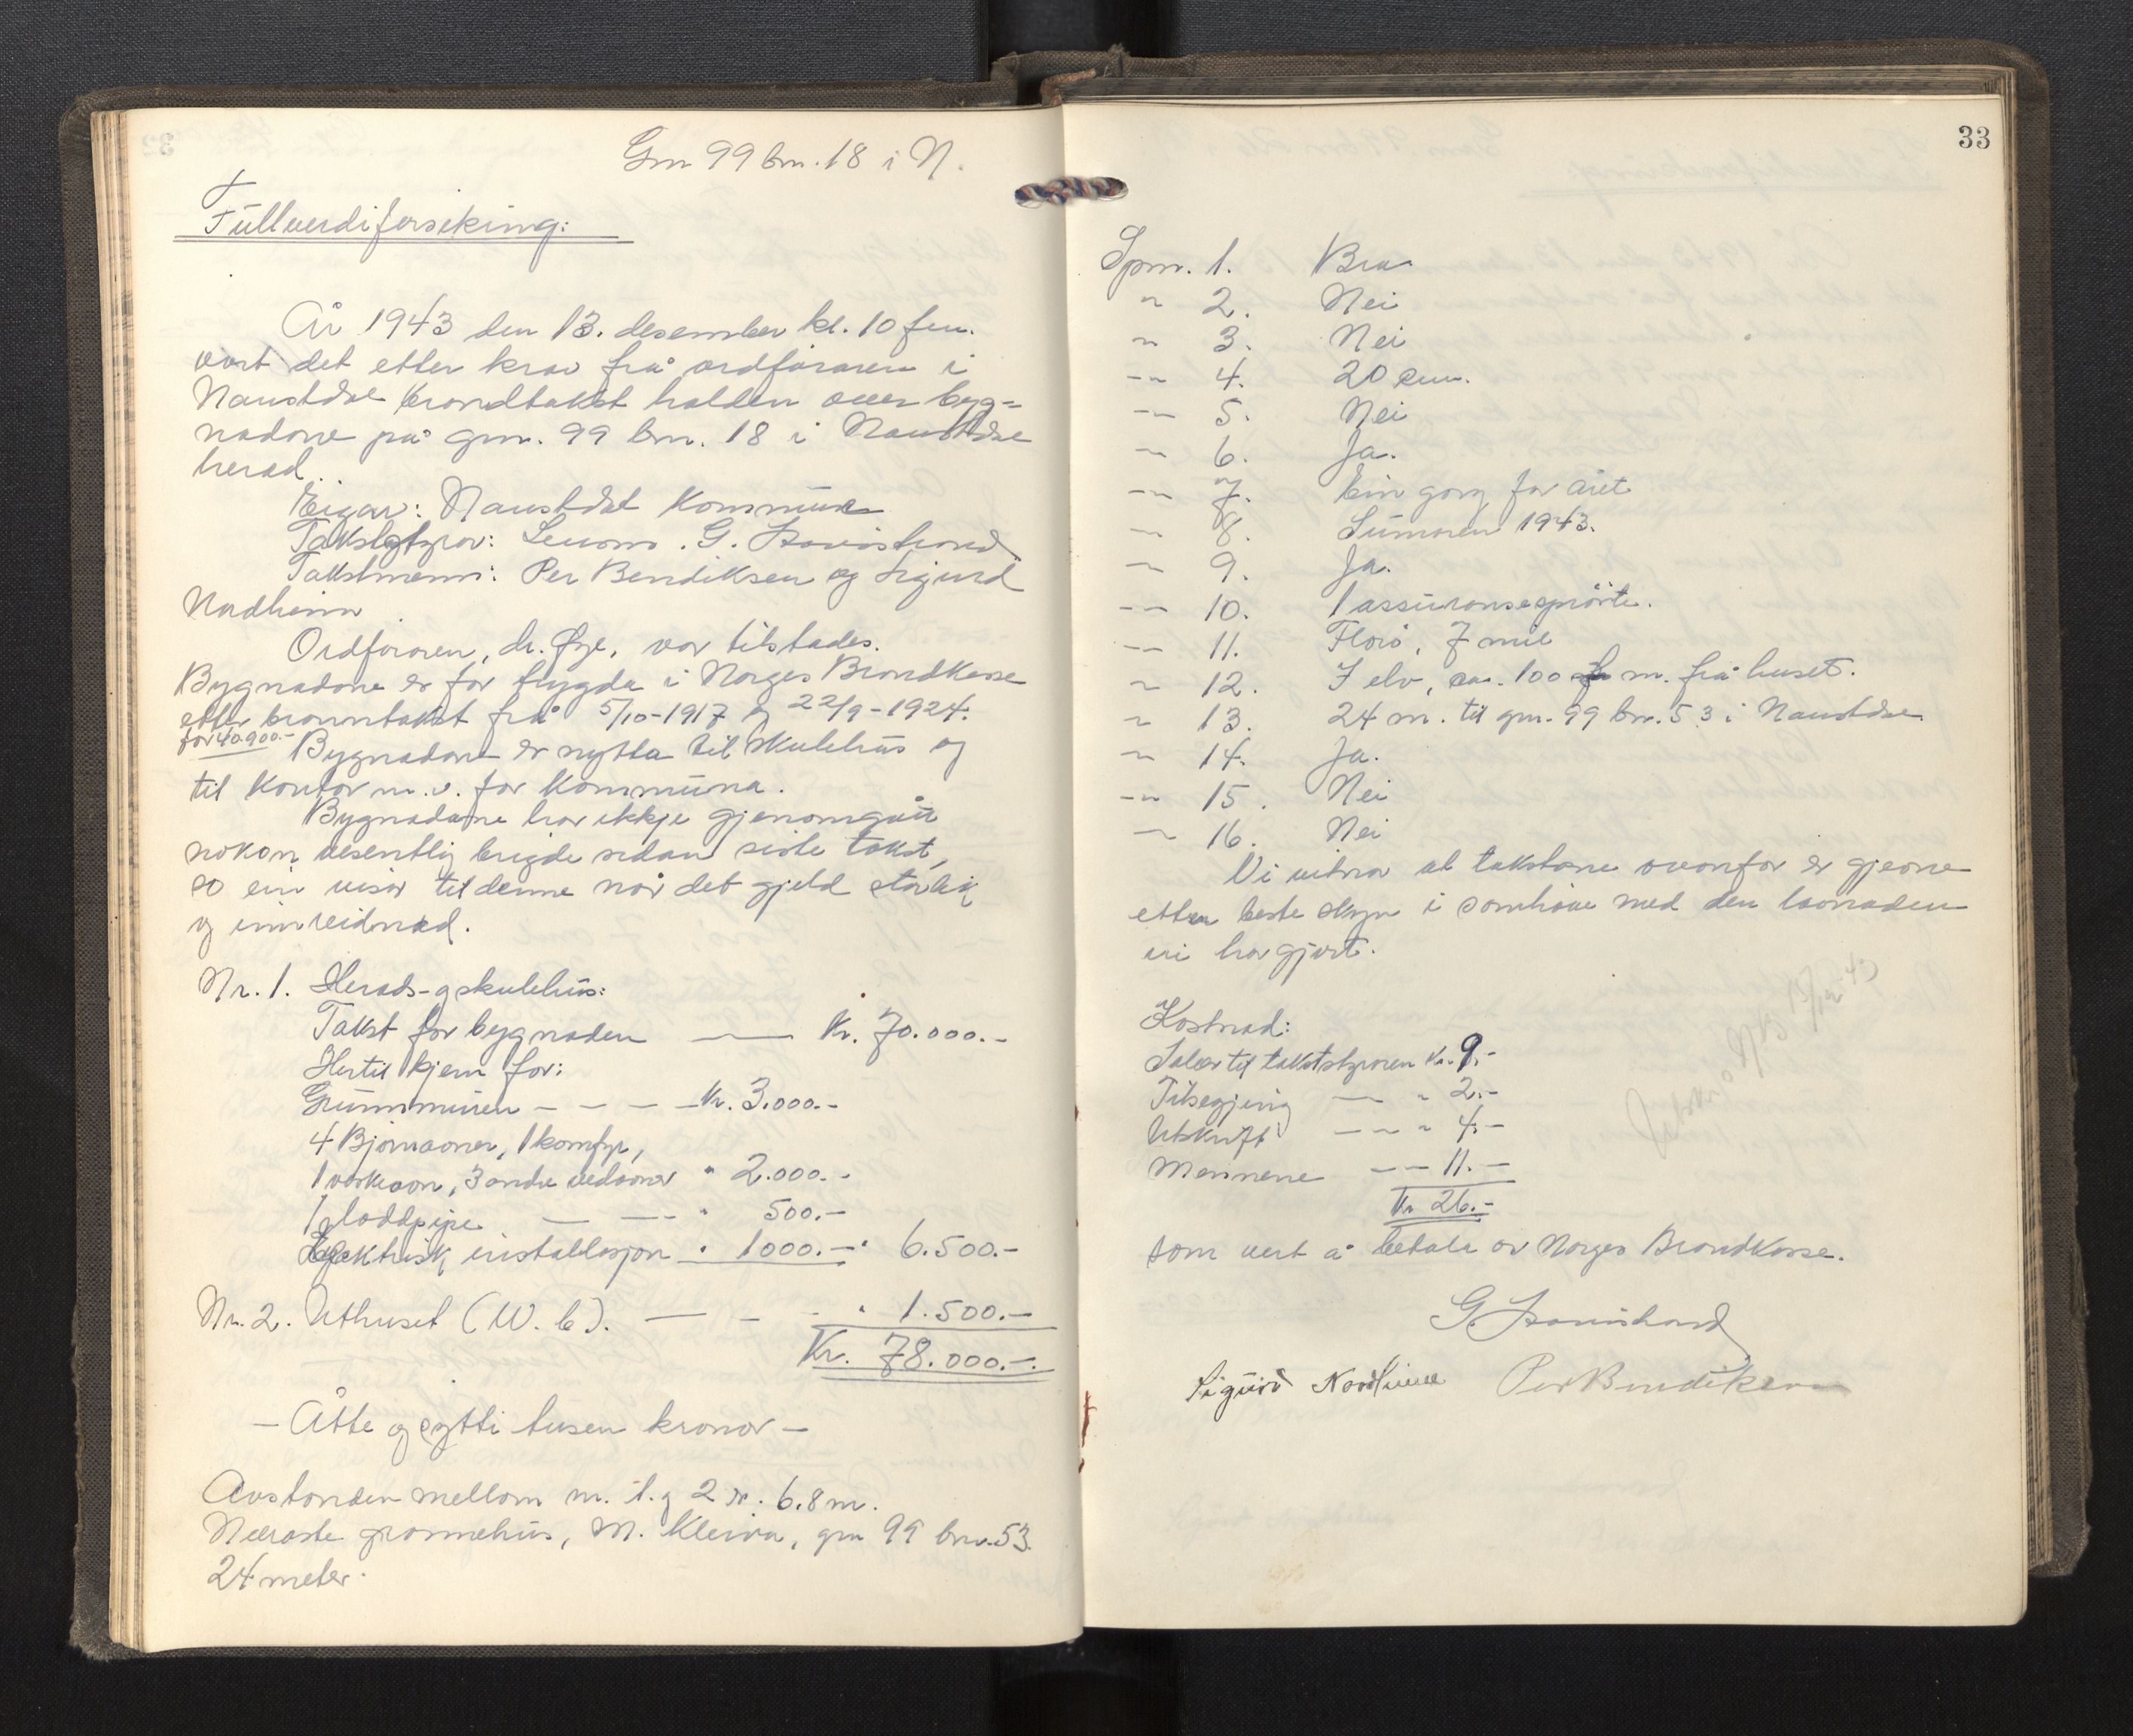 Gm 99 bm. 18 i N.
Fullverdiforsikring:
År 1943 den 13. desember kl. 10 fm.
vart det etter krav frå ordføraren i
Naustdal branntakst halden over byg=
nadane på gm. 99 bm. 18 i Naustdal
herad.
Eigar: Naustdal kommune
Takststyrar: Lensm. G.
Takstmenn: Per Bendiksen og Sigurd
Nordheim
Ordføraren, dr. Øye, var tilstades.
Bygnadane er før trygda i Norges Brandkasse
etter branntakst frå 5/10-1917 og 22/9-1924.
for 40.900.-
Bygnadane er nytta til skulehus og
til kontor m.v. for kommuna.
Bygnadane har ikkje gjenomgått
nokon vesentlig brigde sidan siste takst,
so ein viser til denne når det gjeld storleik
og innreidnad.
Nr. 1. Herads- og skulehus:
Takst for bygnaden — Kr. 70.000.-
Hertil kjem for:
Grunnmuren - - - - Kr. 3.000.-
4 Bjørnaoner, 1 komfyr,
1 vaskeaon, 3 andre vedaoner " 2.000.-
1 loddpipe — — " 500.-
Elektrisk installasjon " 1000.- " 6.500.-
Nr. 2. Uthuset (W. C). — - - " 1.500.-
Kr. 78.000.-
- Åtte og sytti tusen kronor -
Avstanden mellom nr. 1. og 2 er. 6.8 m.
Næraste grannehus, M. Kleiva, gm 99 bm. 53.
24 meter.
33
Spm. 1. Bra
" 2. Nei
" 3. Nei
" 4. 20 cm.
" 5. Nei
" 6. Ja.
" 7. Ein gong for året
" 8. Sumaren 1943.
" 9. Ja.
" 10. 1 assuransesprøite.
" 11. Florø, 7 mil
" 12. I elv, ca. 100 m. frå huset.
" 13. 24 m. til gm. 99 bm. 53 i Naustdal
" 14. Ja.
" 15. Nei
" 16. Nei
Vi vitnar at takstane ovanfor er gjevne
etter beste skyn i samhøve med den lovnaden
vi har gjort.
Kostnad:
Salær til takststyraren Kr. 9.-
Tilsegjing — " 2.-
Utskrift — " 4.-
Mennene — 11.-
Kr 26.-
som vert å betala av Norges Brandkasse.
15/12-43
G.
Sigurd Nordheim Per Bendiksen